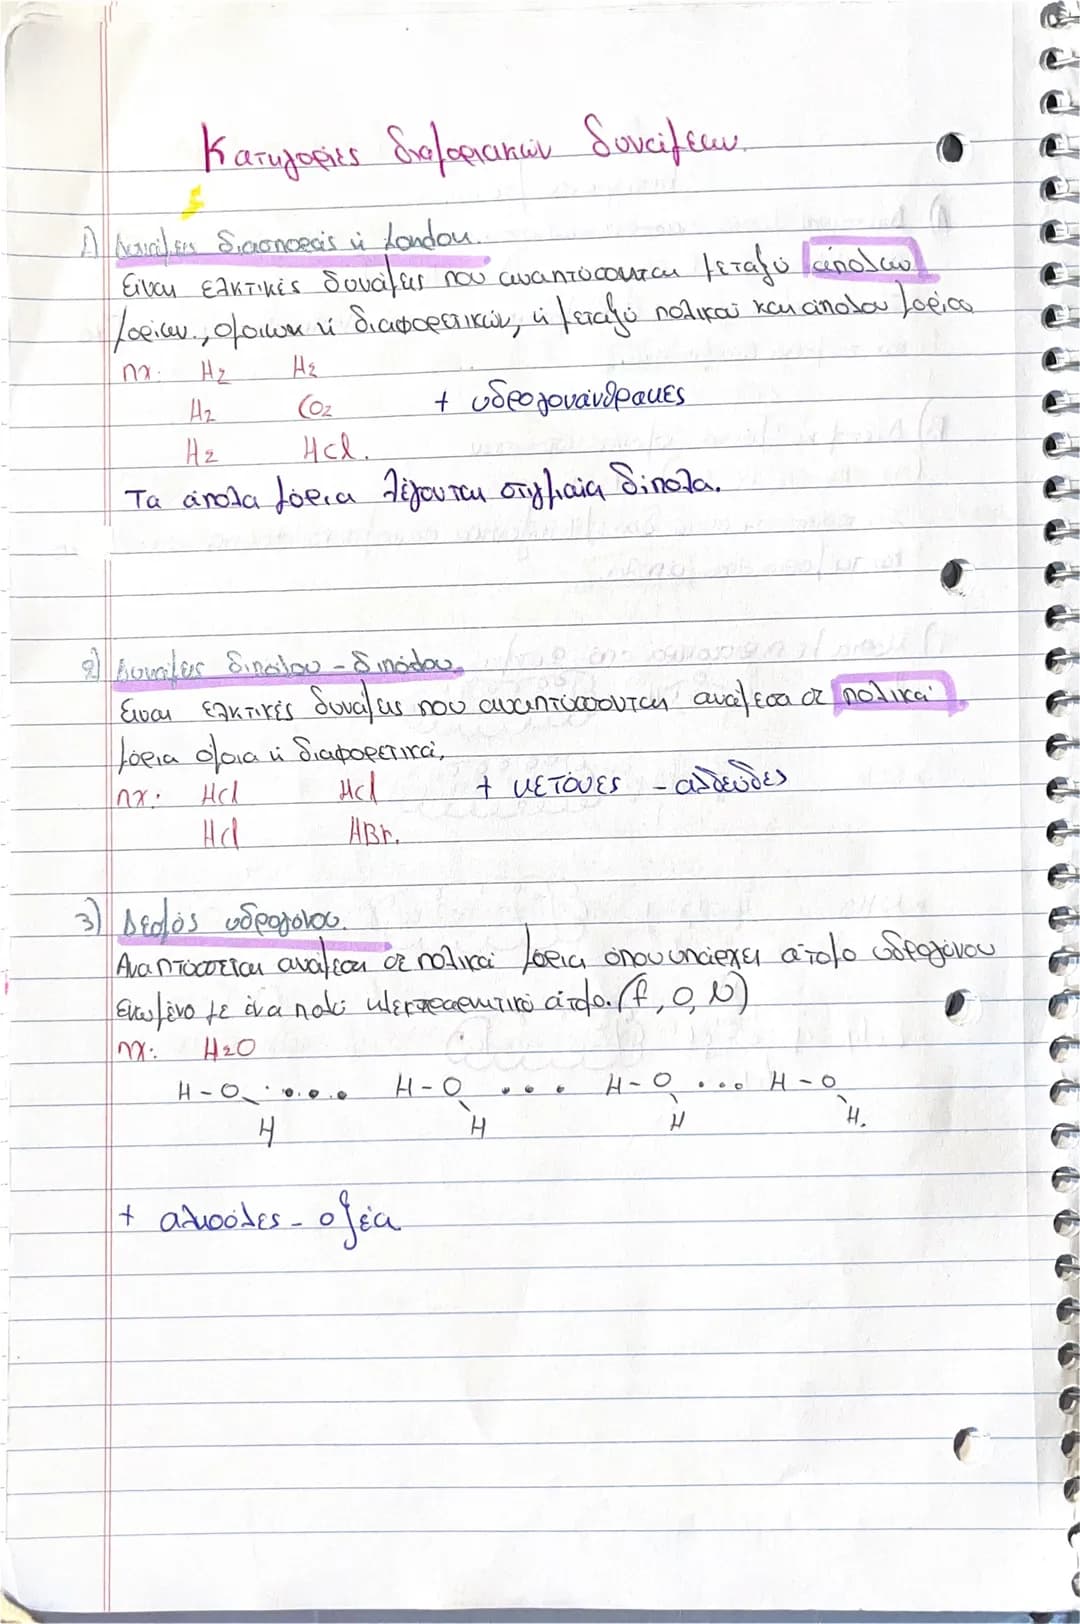 Κατηγορίες διαμοριακών δυνάμεων.
1) Δυνάμεις διασποράς ή London.
Είναι ελκτικές δυνάμεις που αναπτύσσονται μεταξύ άπολων
μορίων, όμοιων ή διαφορετικών, ή μεταξύ πολικού και άπολου μορίου
πχ. H2 H2
H2 CO2 + υδρογονάνθρακες
H2 HCl.
Τα άπολα μόρια λέγονται στιγμιαία δίπολα.
2) Δυνάμεις διπόλου - διπόλου.
Είναι ελκτικές δυνάμεις που αναπτύσσονται ανάμεσα σε πολικά
μόρια όμοια ή διαφορετικά,
πχ: HCl HCl + κετόνες - αλδεύδες
HCl HBr.
3) Δεσμός υδρογόνου.
Αναπτύσσεται ανάμεσα σε πολικά μόρια όπου υπάρχει άτομο υδρογόνου
ενωμένο με ένα πολύ ηλεκτραρνητικό άτομο. (F, O, N)
πχ: H2O
H-O .... H-O ... H-O ... H-O
H H H H.
+ αλκοόλες - οξέα